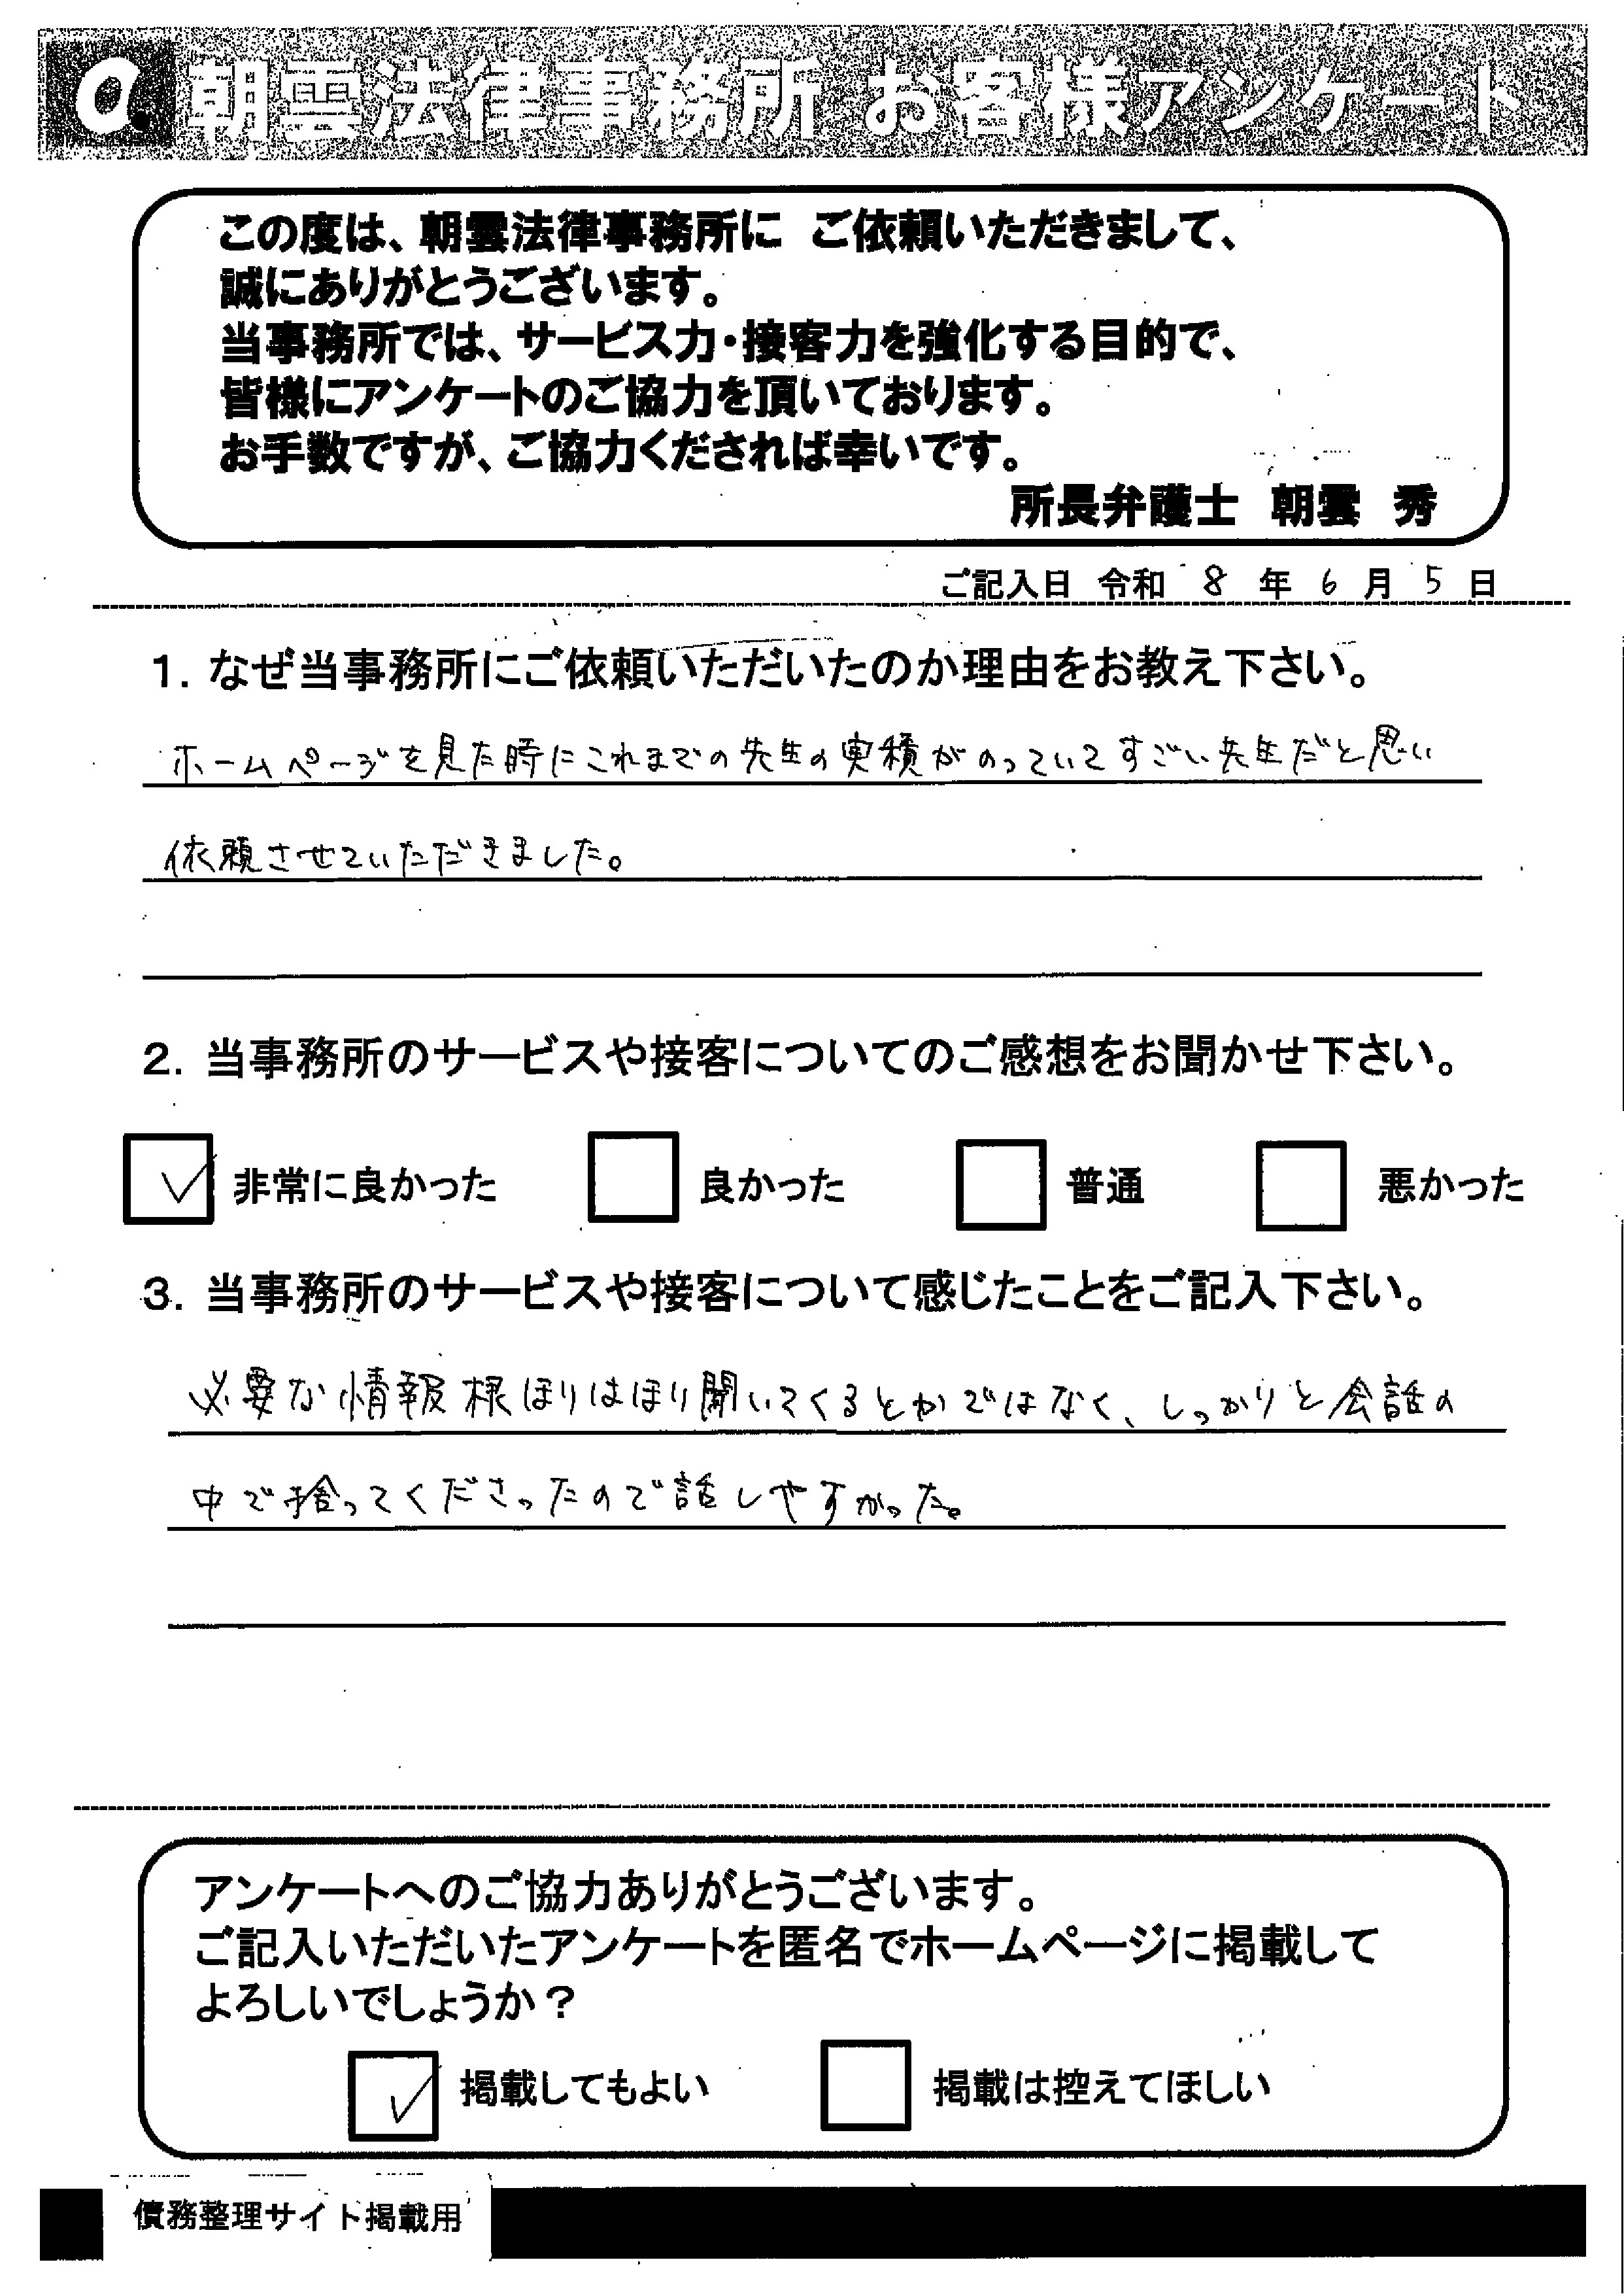 a. 朝雲法律事務所 お客様アンケート
この度は、朝雲法律事務所に ご依頼いただきまして、
誠にありがとうございます。
当事務所では、サービス力・接客力を強化する目的で、
皆様にアンケートのご協力を頂いております。
お手数ですが、ご協力くだされば幸いです。
所長弁護士 朝雲 秀
ご記入日 令和 8 年 6 月 5 日
1. なぜ当事務所にご依頼いただいたのか理由をお教え下さい。
ホームページを見た時にこれまでの先生の実積がのっていてすごい先生だと思い
依頼させていただきました。
2. 当事務所のサービスや接客についてのご感想をお聞かせ下さい。
✓ 非常に良かった 良かった 普通 悪かった
3. 当事務所のサービスや接客について感じたことをご記入下さい。
必要な情報根ほりはほり聞いてくるとかではなく、しっかりと会話の
中で拾ってくださったので話しやすかった。
アンケートへのご協力ありがとうございます。
ご記入いただいたアンケートを匿名でホームページに掲載して
よろしいでしょうか?
✓ 掲載してもよい 掲載は控えてほしい
債務整理サイト掲載用